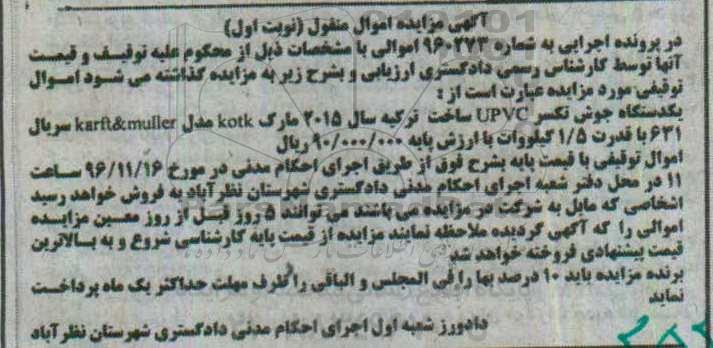 آگهی مزایده اموال منقول (نوبت اول)
در پرونده اجرایی به شماره ۹۶۰۲۷۳ اموالی با مشخصات ذیل از محکوم علیه توقیف و قیمت
آنها توسط کارشناس رسمی دادگستری ارزیابی و بشرح زیر به مزایده گذاشته می شود اموال
توقیفی مورد مزایده عبارت است از :
یکدستگاه جوش تکسر UPVC ساخت ترکیه سال ۲۰۱۵ مارک kotk مدل karft&muller سریال
۶۳۱ با قدرت ۱/۵ کیلووات با ارزش پایه ۹۰/۰۰۰/۰۰۰ ریال
اموال توقیفی با قیمت پایه بشرح فوق از طریق اجرای احکام مدنی در مورخ ۹۶/۱۱/۱۶ ساعت
۱۱ در محل دفتر شعبه اجرای احکام مدنی دادگستری شهرستان نظرآباد به فروش خواهد رسید
اشخاصی که مایل به شرکت در مزایده می باشند می توانند ۵ روز قبل از روز معین مزایده
اموالی را که آگهی گردیده ملاحظه نمایند مزایده از قیمت پایه کارشناسی شروع و به بالاترین
قیمت پیشنهادی فروخته خواهد شد
برنده مزایده باید ۱۰ درصد بها را فی المجلس و الباقی را ظرف مهلت حداکثر یک ماه پرداخت
نماید
دادورز شعبه اول اجرای احکام مدنی دادگستری شهرستان نظرآباد